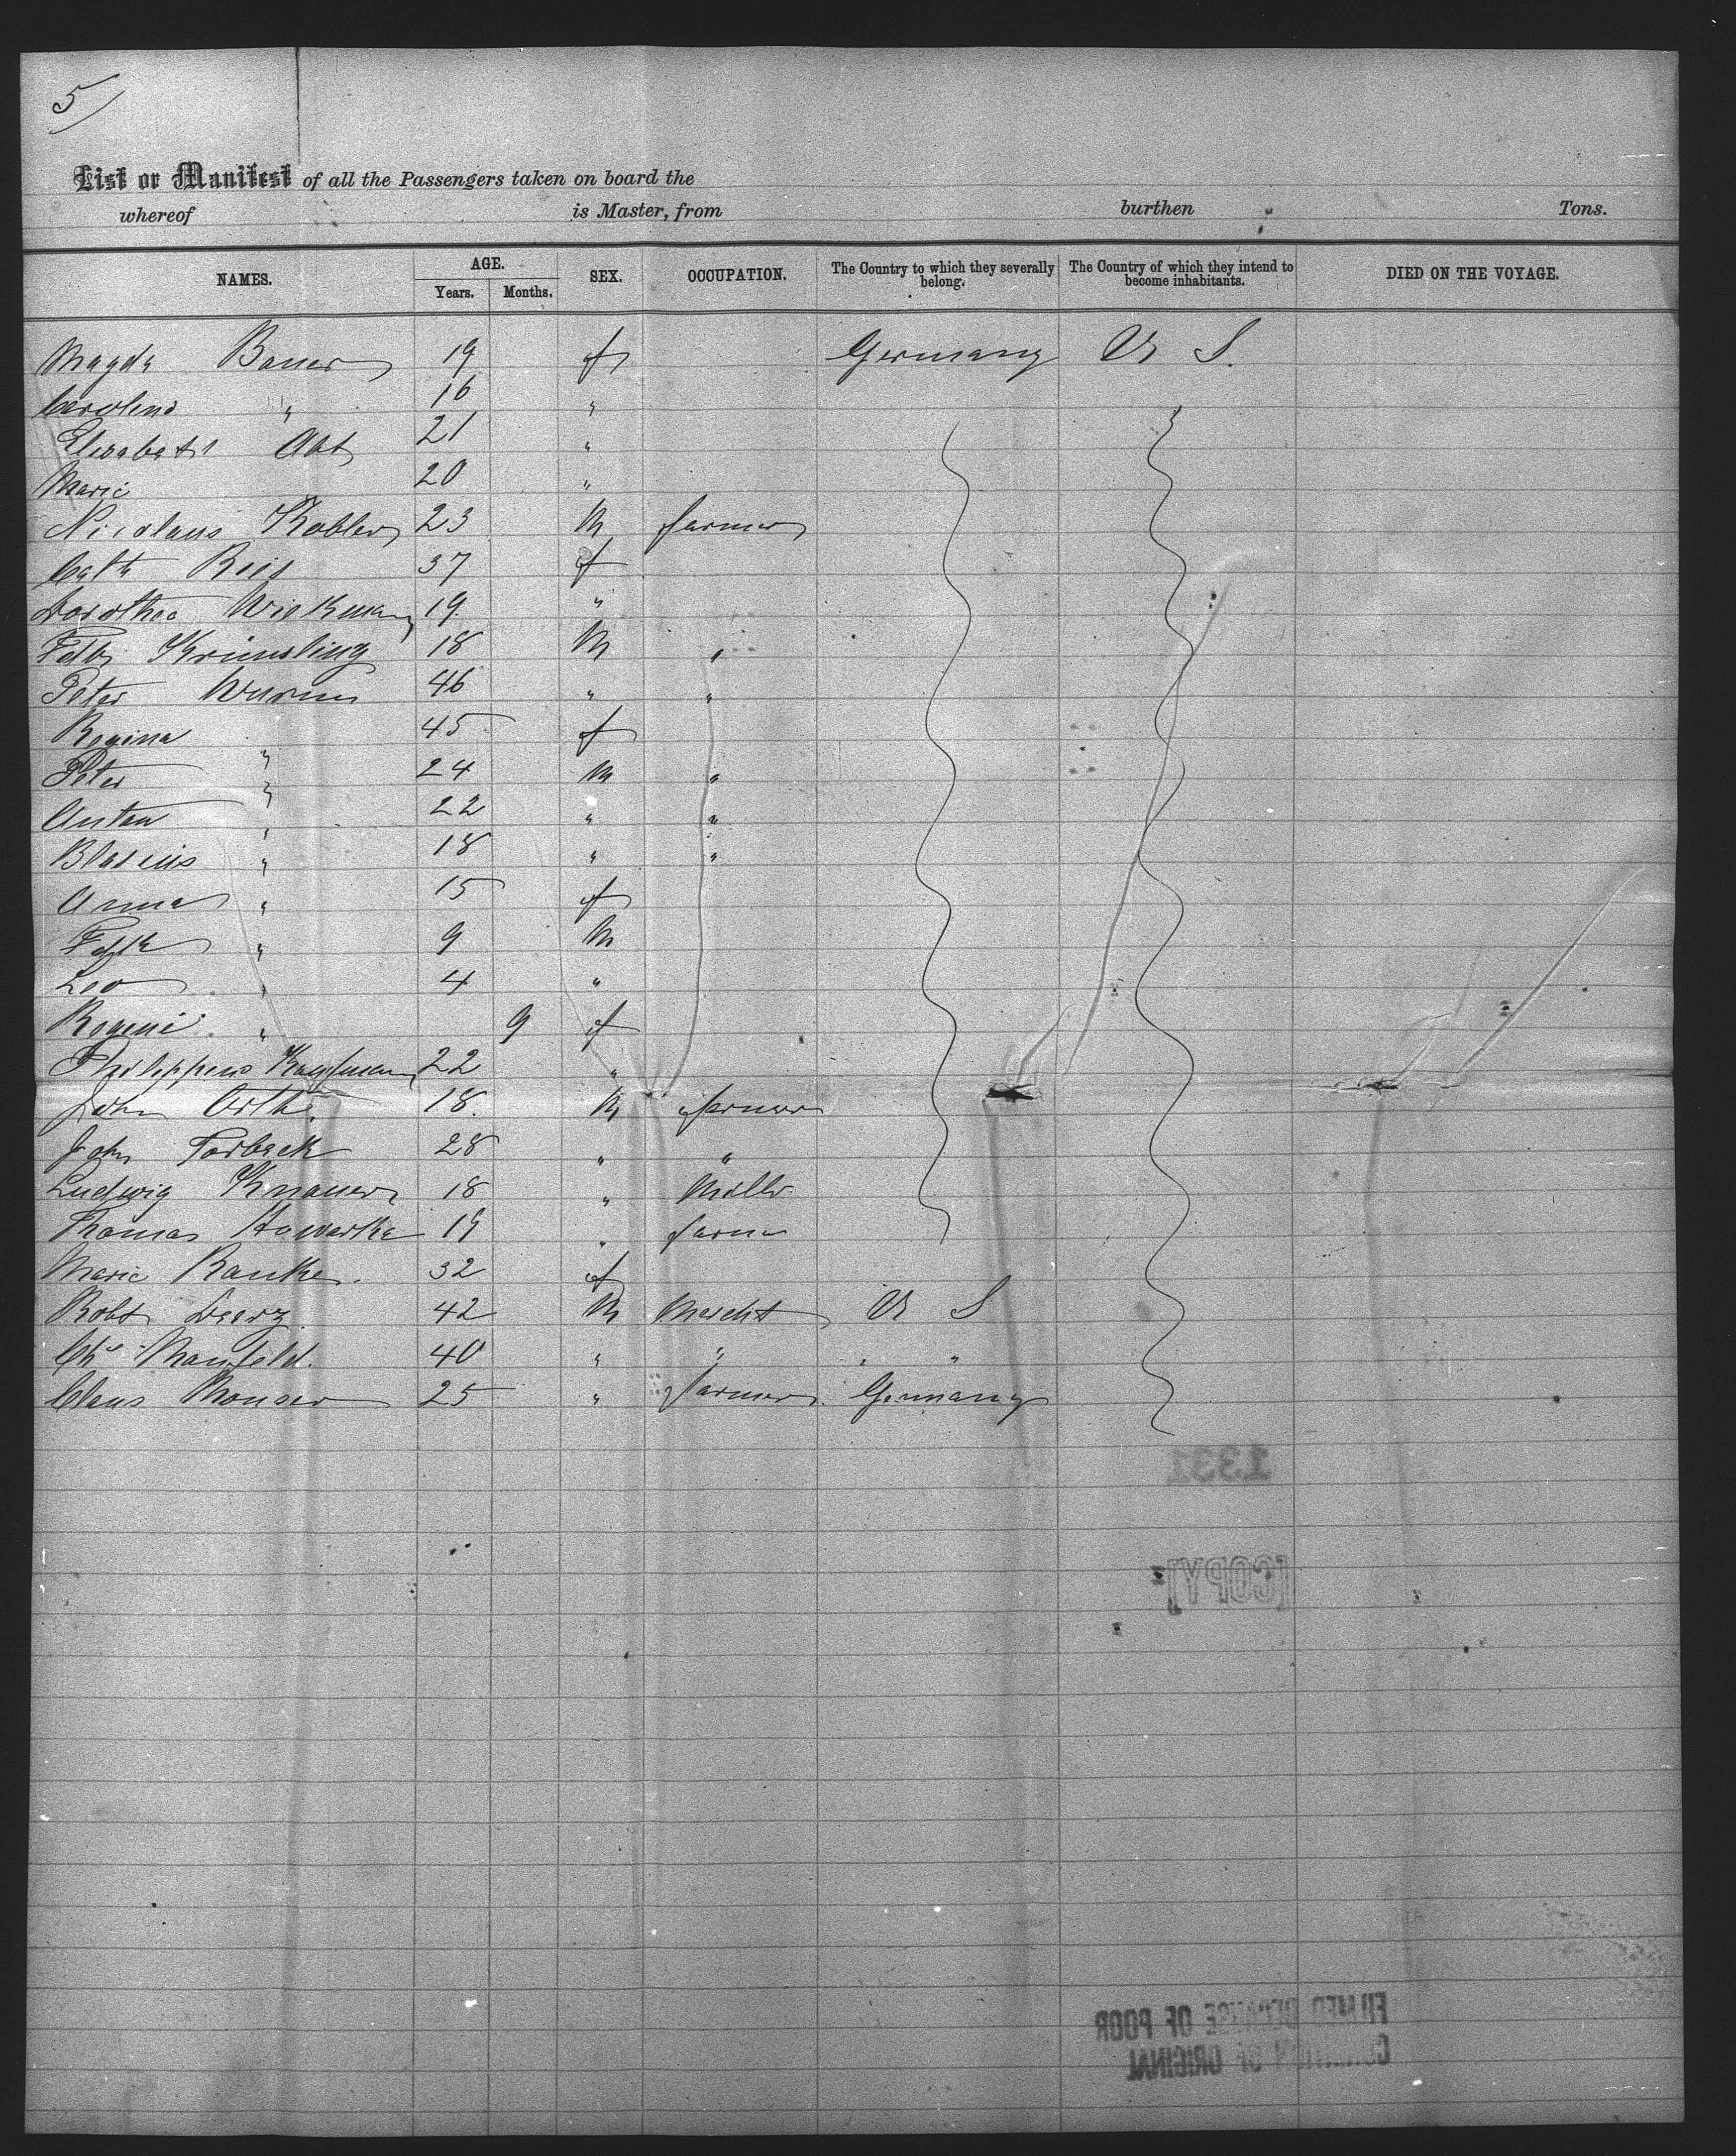 5/
List or Manifest of all the Passengers taken on board the
whereof is Master, from burthen Tons.
NAMES. AGE. Years. Months. SEX. OCCUPATION. The Country to which they severally belong. The Country of which they intend to become inhabitants. DIED ON THE VOYAGE.
Magda Bauer 19 f Germany U S.
Carolina " 16 "
Elisabeth Abt 21 "
Marie 20 "
Nicolaus Kobler 23 M farmer
Cath Reis 37 f
Dorothea Wiekman 19 "
18 M "
Peter Wurm 46 " "
Regina " 45 f
Peter " 24 M "
Anton " 22 " "
Blasius " 18 " "
Anna " 15 f
" 9 M
Leo " 4 "
" 9 f
Kaufman 22 "
John Orth 18. M farmer
John Forbeck 28 " "
Ludwig Knauer 18 " Miller
Thomas 19 " farmer
Marie Ranke. 32 f
Robt 42 M Mercht U S
Chs Manfeld. 40 " " " "
Claus 25 " farmer. Germany
1331
[COPY]
FILMED BECAUSE OF POOR
CONDITION OF ORIGINAL